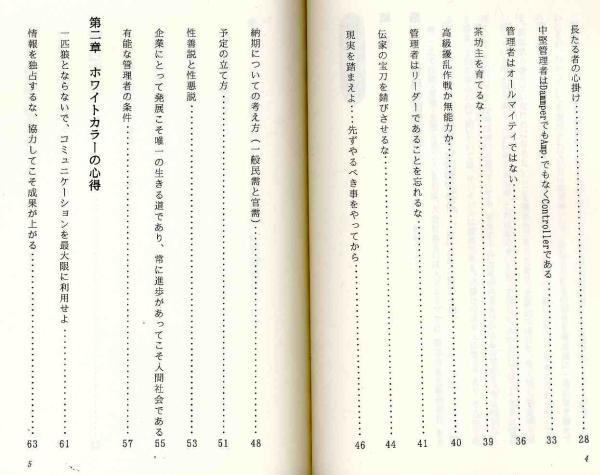 長たる者の心掛け……………………28
中堅管理者はDammperでもAmp.でもなくControllerである……………………33
管理者はオールマイティではない……………………36
茶坊主を育てるな……………………39
高級擾乱作戦か無能力か……………………40
管理者はリーダーであることを忘れるな……………………41
伝家の宝刀を錆びさせるな……………………44
現実を踏まえよ……先ずやるべき事をやってから……………………46
4
納期についての考え方(一般民需と官需)……………………48
予定の立て方……………………51
性善説と性悪説……………………53
企業にとって発展こそ唯一の生きる道であり、常に進歩があってこそ人間社会である……55
有能な管理者の条件……………………57
第二章 ホワイトカラーの心得
一匹狼とならないで、コミュニケーションを最大限に利用せよ……………………61
情報を独占するな、協力してこそ成果が上がる……………………63
5